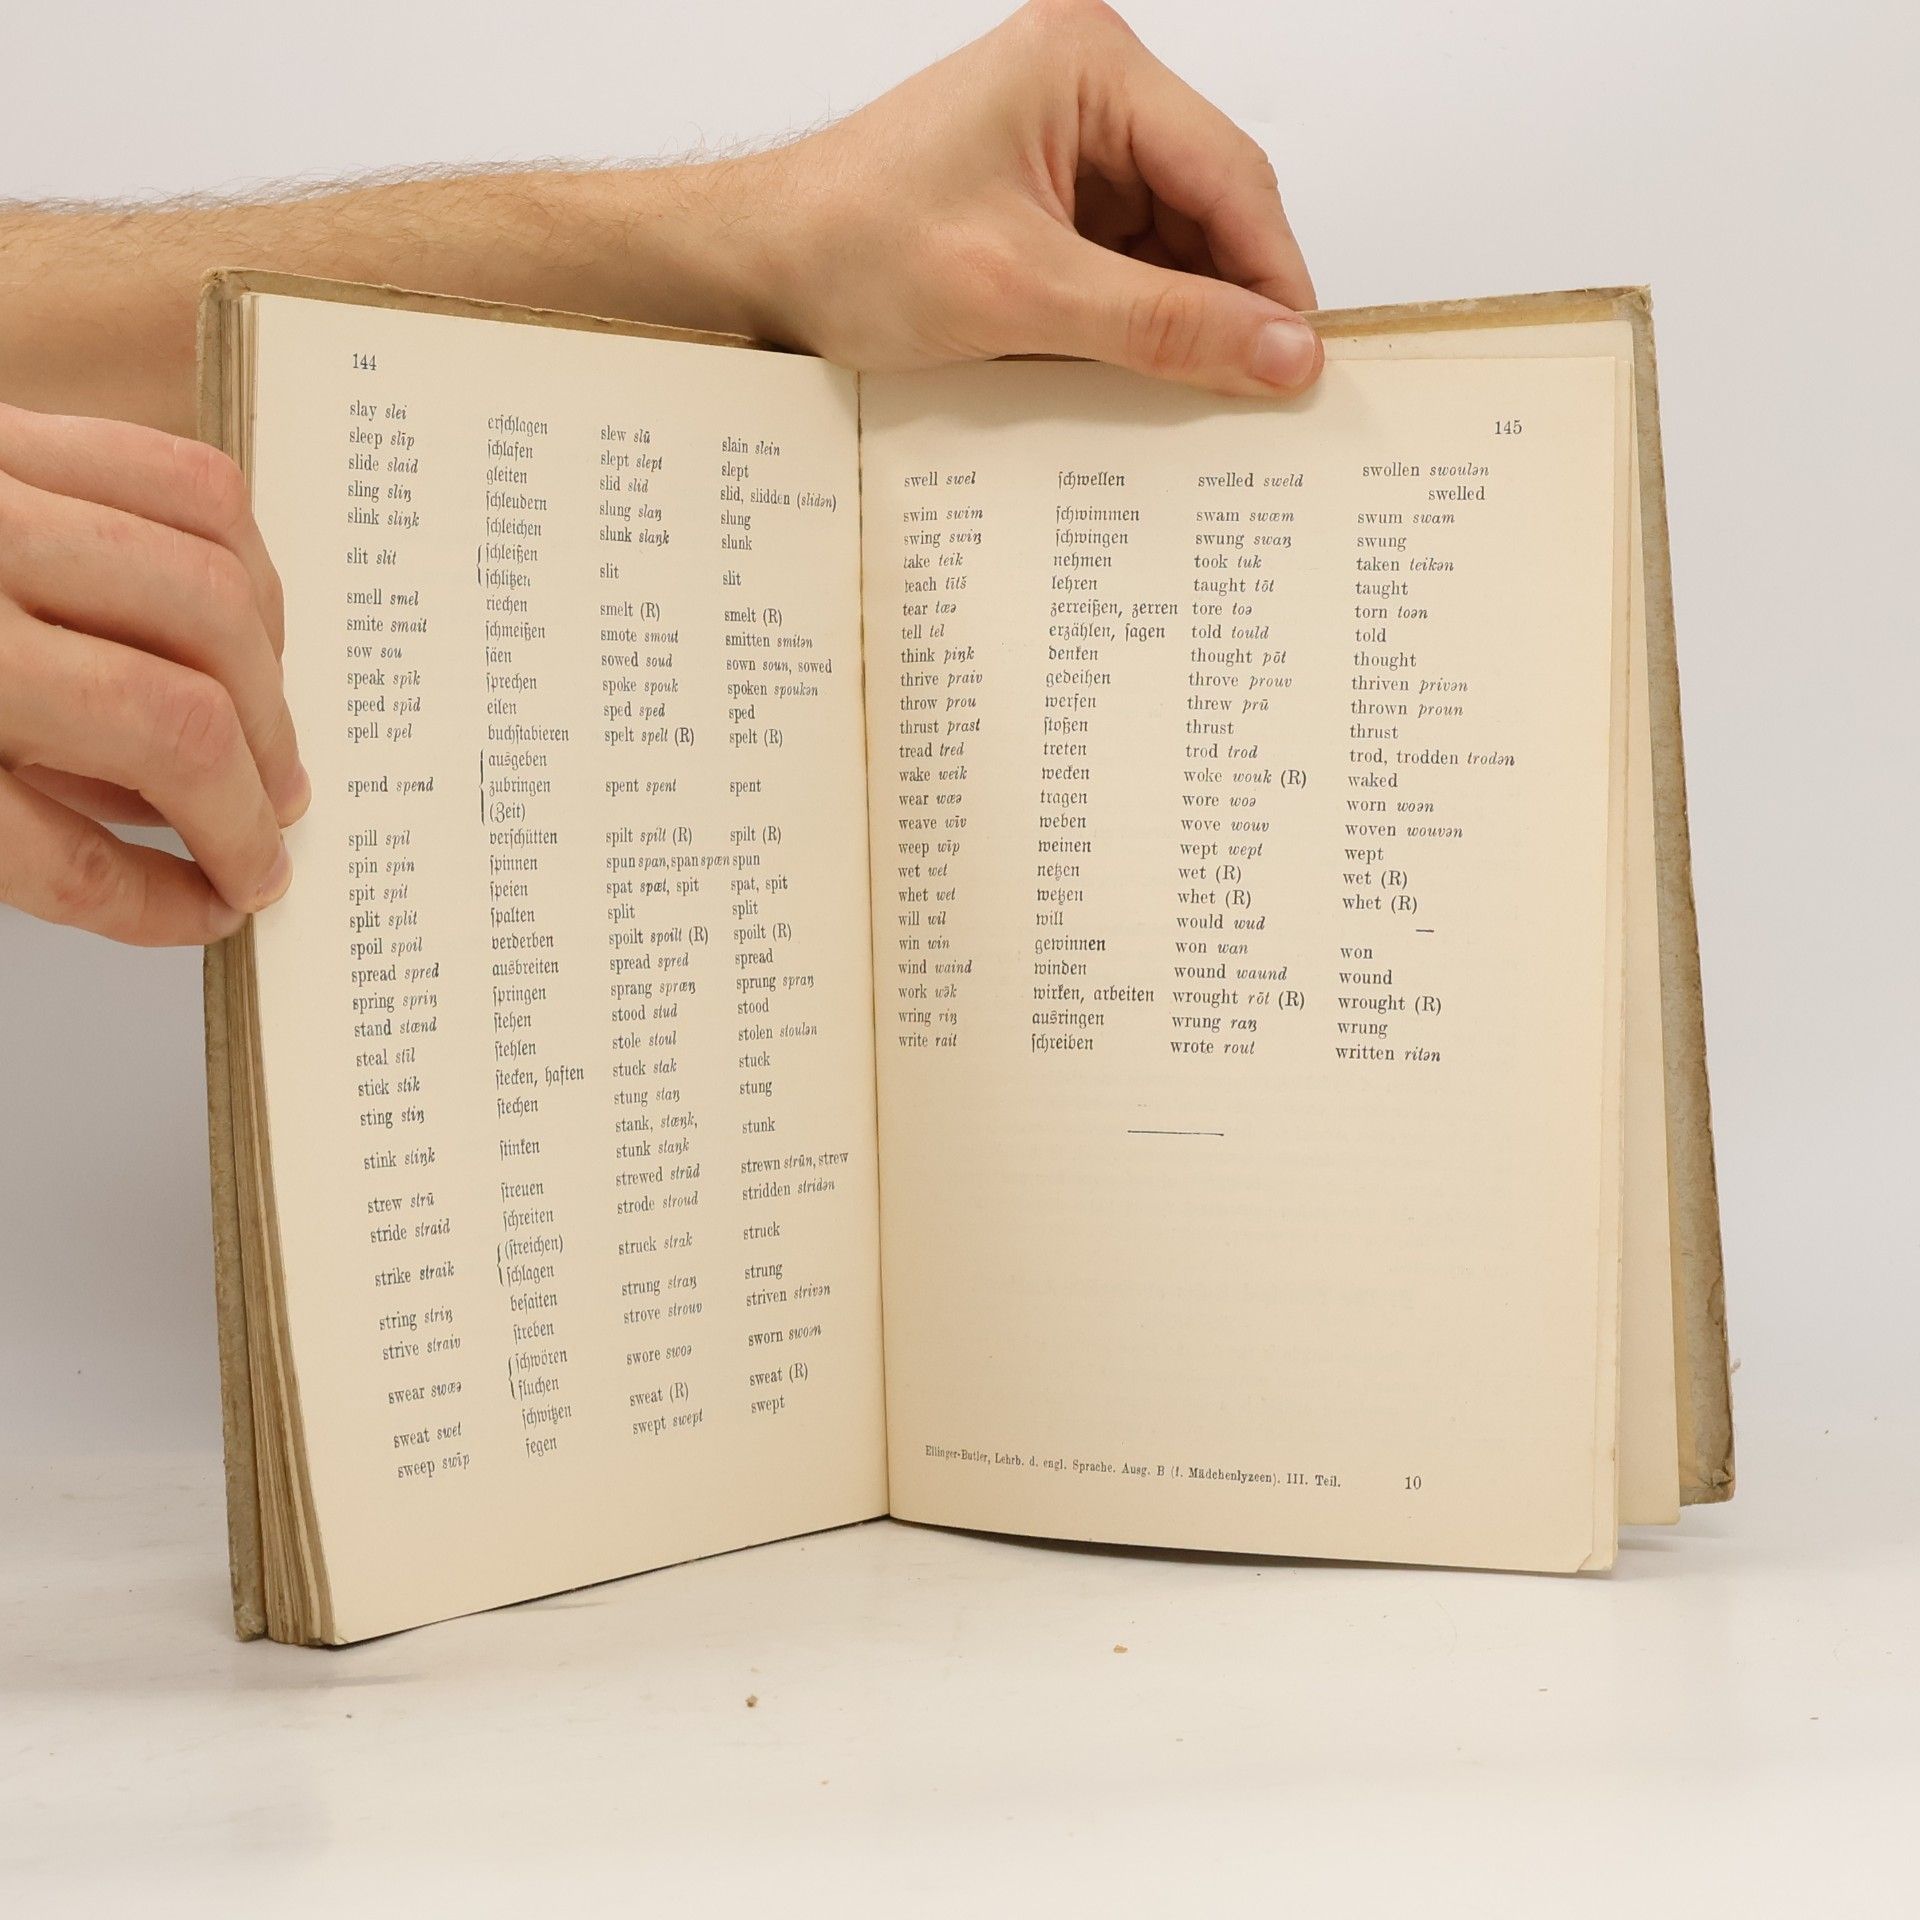 144
slay slei erſchlagen slew slū slain slein
sleep slīp ſchlafen slept slept slept
slide slaid gleiten slid slid slid, slidden (slidən)
sling sliŋ ſchleudern slung slaŋ slung
slink sliŋk ſchleichen slunk slaŋk slunk
slit slit ſchleißen
ſchlitzen slit slit
smell smel riechen smelt (R) smelt (R)
smite smait ſchmeißen smote smout smitten smitən
sow sou ſäen sowed soud sown soun, sowed
speak spīk ſprechen spoke spouk spoken spoukən
speed spīd eilen sped sped sped
spell spel buchſtabieren spelt spelt (R) spelt (R)
ausgeben
spend spend zubringen spent spent spent
(Zeit)
spill spil verſchütten spilt spilt (R) spilt (R)
spin spin ſpinnen spun span, span spæn spun
spit spit ſpeien spat spæt, spit spat, spit
split split ſpalten split split
spoil spoil verderben spoilt spoilt (R) spoilt (R)
spread spred ausbreiten spread spred spread
spring spriŋ ſpringen sprang spræŋ sprung spraŋ
stand stænd ſtehen stood stud stood
steal stīl ſtehlen stole stoul stolen stoulən
stick stik ſtecken, haften stuck stak stuck
sting stiŋ ſtechen stung staŋ stung
stink stiŋk ſtinken stank, stæŋk, stunk
stunk staŋk
strew strū ſtreuen strewed strūd strewn strūn, strew
stride straid ſchreiten strode stroud stridden stridən
strike straik (ſtreichen) struck strak struck
ſchlagen
string striŋ beſaiten strung straŋ strung
strive straiv ſtreben strove strouv striven strivən
swear swæə ſchwören swore swoə sworn swoən
fluchen
sweat swet ſchwitzen sweat (R) sweat (R)
sweep swīp fegen swept swept swept
145
swell swel ſchwellen swelled sweld swollen swoulən
swelled
swim swim ſchwimmen swam swæm swum swam
swing swiŋ ſchwingen swung swaŋ swung
take teik nehmen took tuk taken teikən
teach tītš lehren taught tōt taught
tear tæə zerreißen, zerren tore toə torn toən
tell tel erzählen, ſagen told tould told
think þiŋk denken thought þōt thought
thrive þraiv gedeihen throve þrouv thriven þrivən
throw þrou werfen threw þrū thrown þroun
thrust þrast ſtoßen thrust thrust
tread tred treten trod trod trod, trodden trodən
wake weik wecken woke wouk (R) waked
wear wæə tragen wore woə worn woən
weave wīv weben wove wouv woven wouvən
weep wīp weinen wept wept wept
wet wet netzen wet (R) wet (R)
whet wet wetzen whet (R) whet (R)
will wil will would wud —
win win gewinnen won wan won
wind waind winden wound waund wound
work wə̄k wirken, arbeiten wrought rōt (R) wrought (R)
wring riŋ ausringen wrung raŋ wrung
write rait ſchreiben wrote rout written ritən
Ellinger-Butler, Lehrb. d. engl. Sprache. Ausg. B (f. Mädchenlyzeen). III. Teil. 10